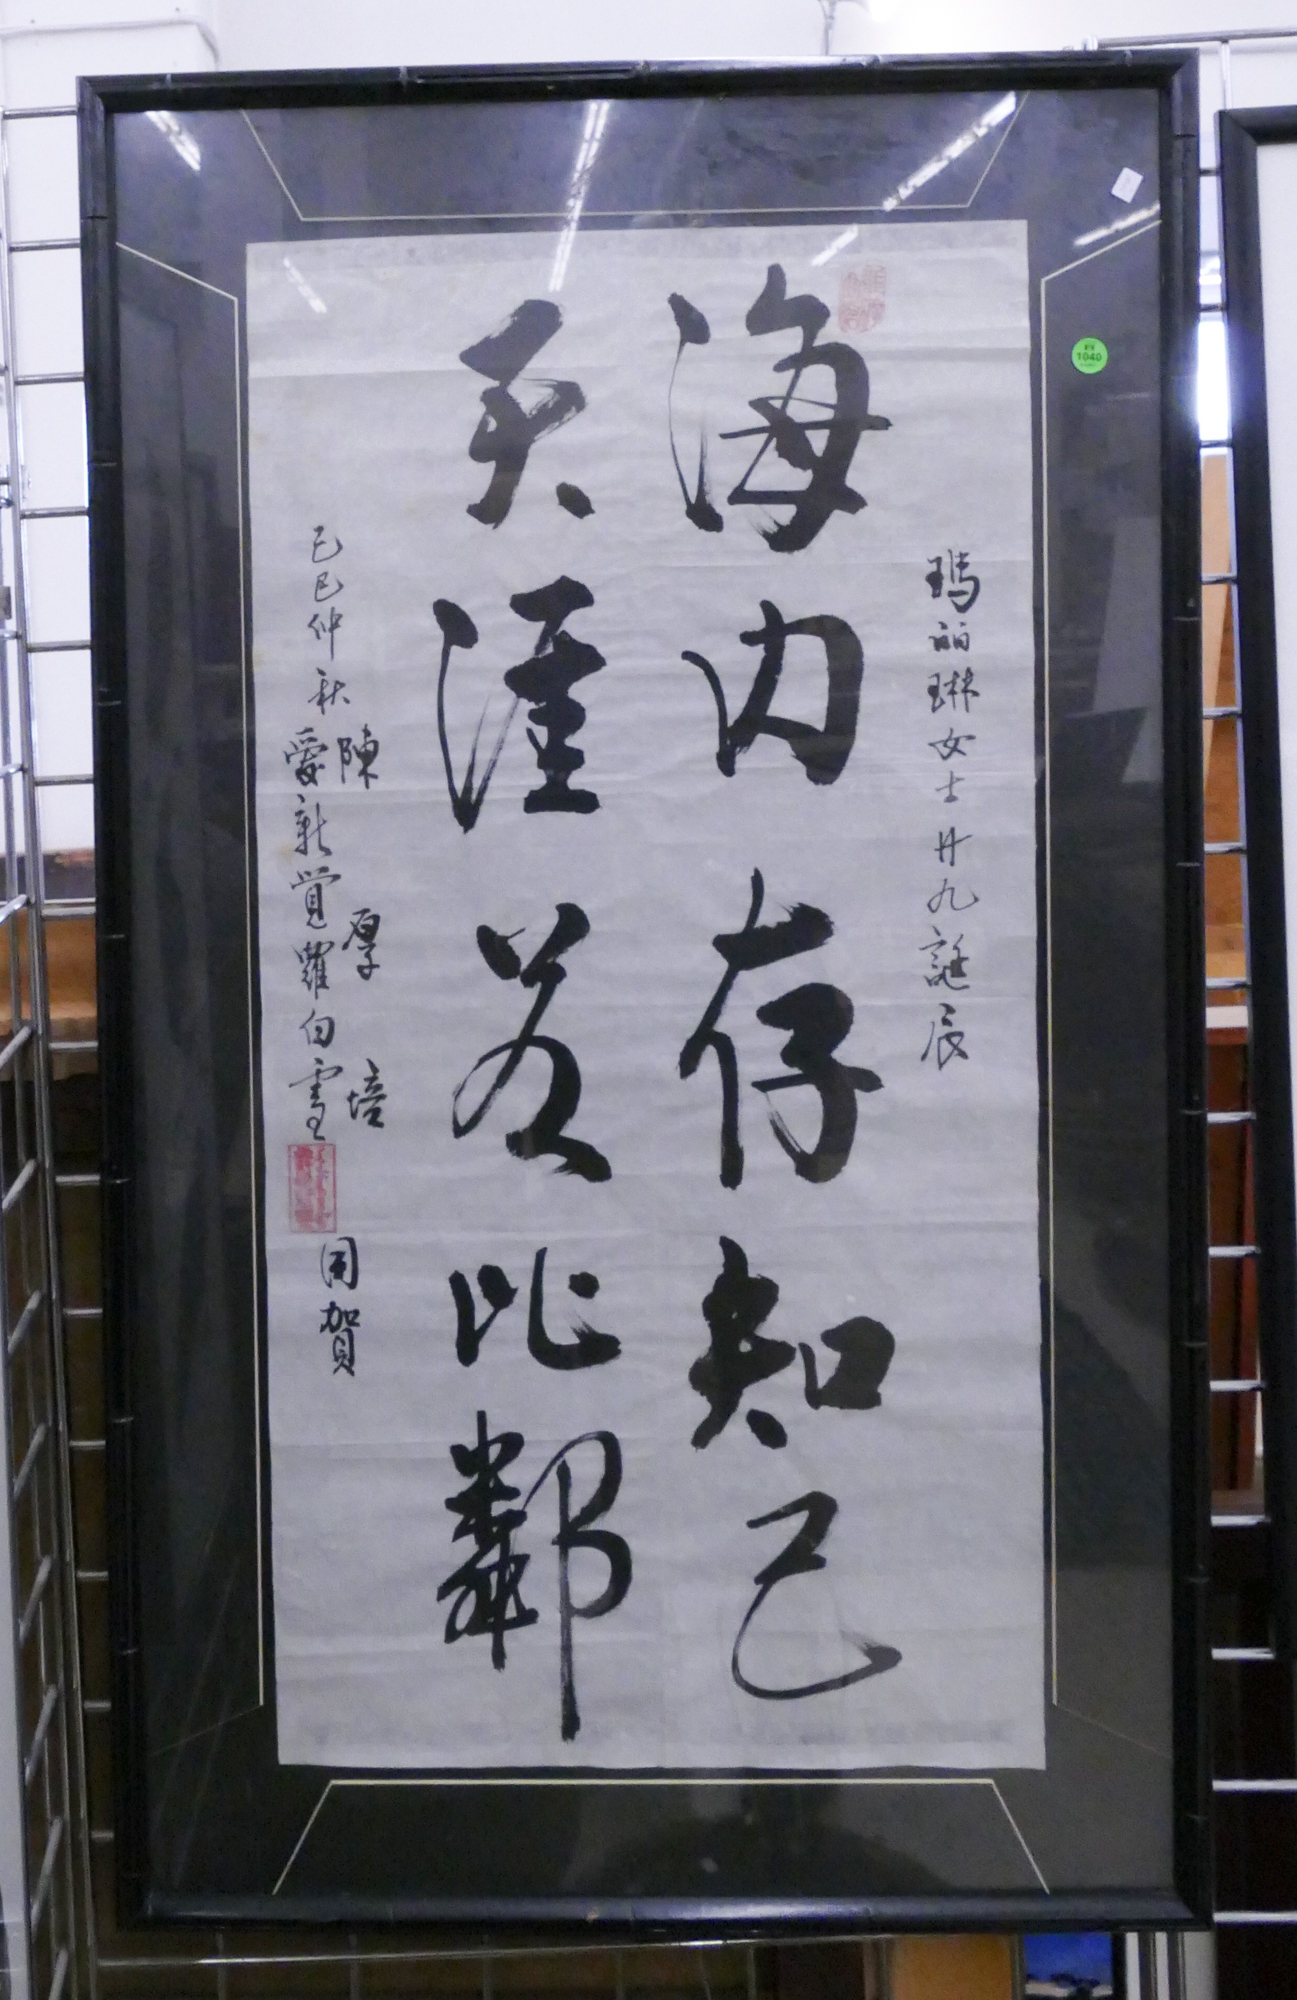 瑪麗琳女士廿九誕辰
海內存知己
天涯若比鄰
己巳仲秋
陳厚培
愛新覺羅白雪
同賀
1040